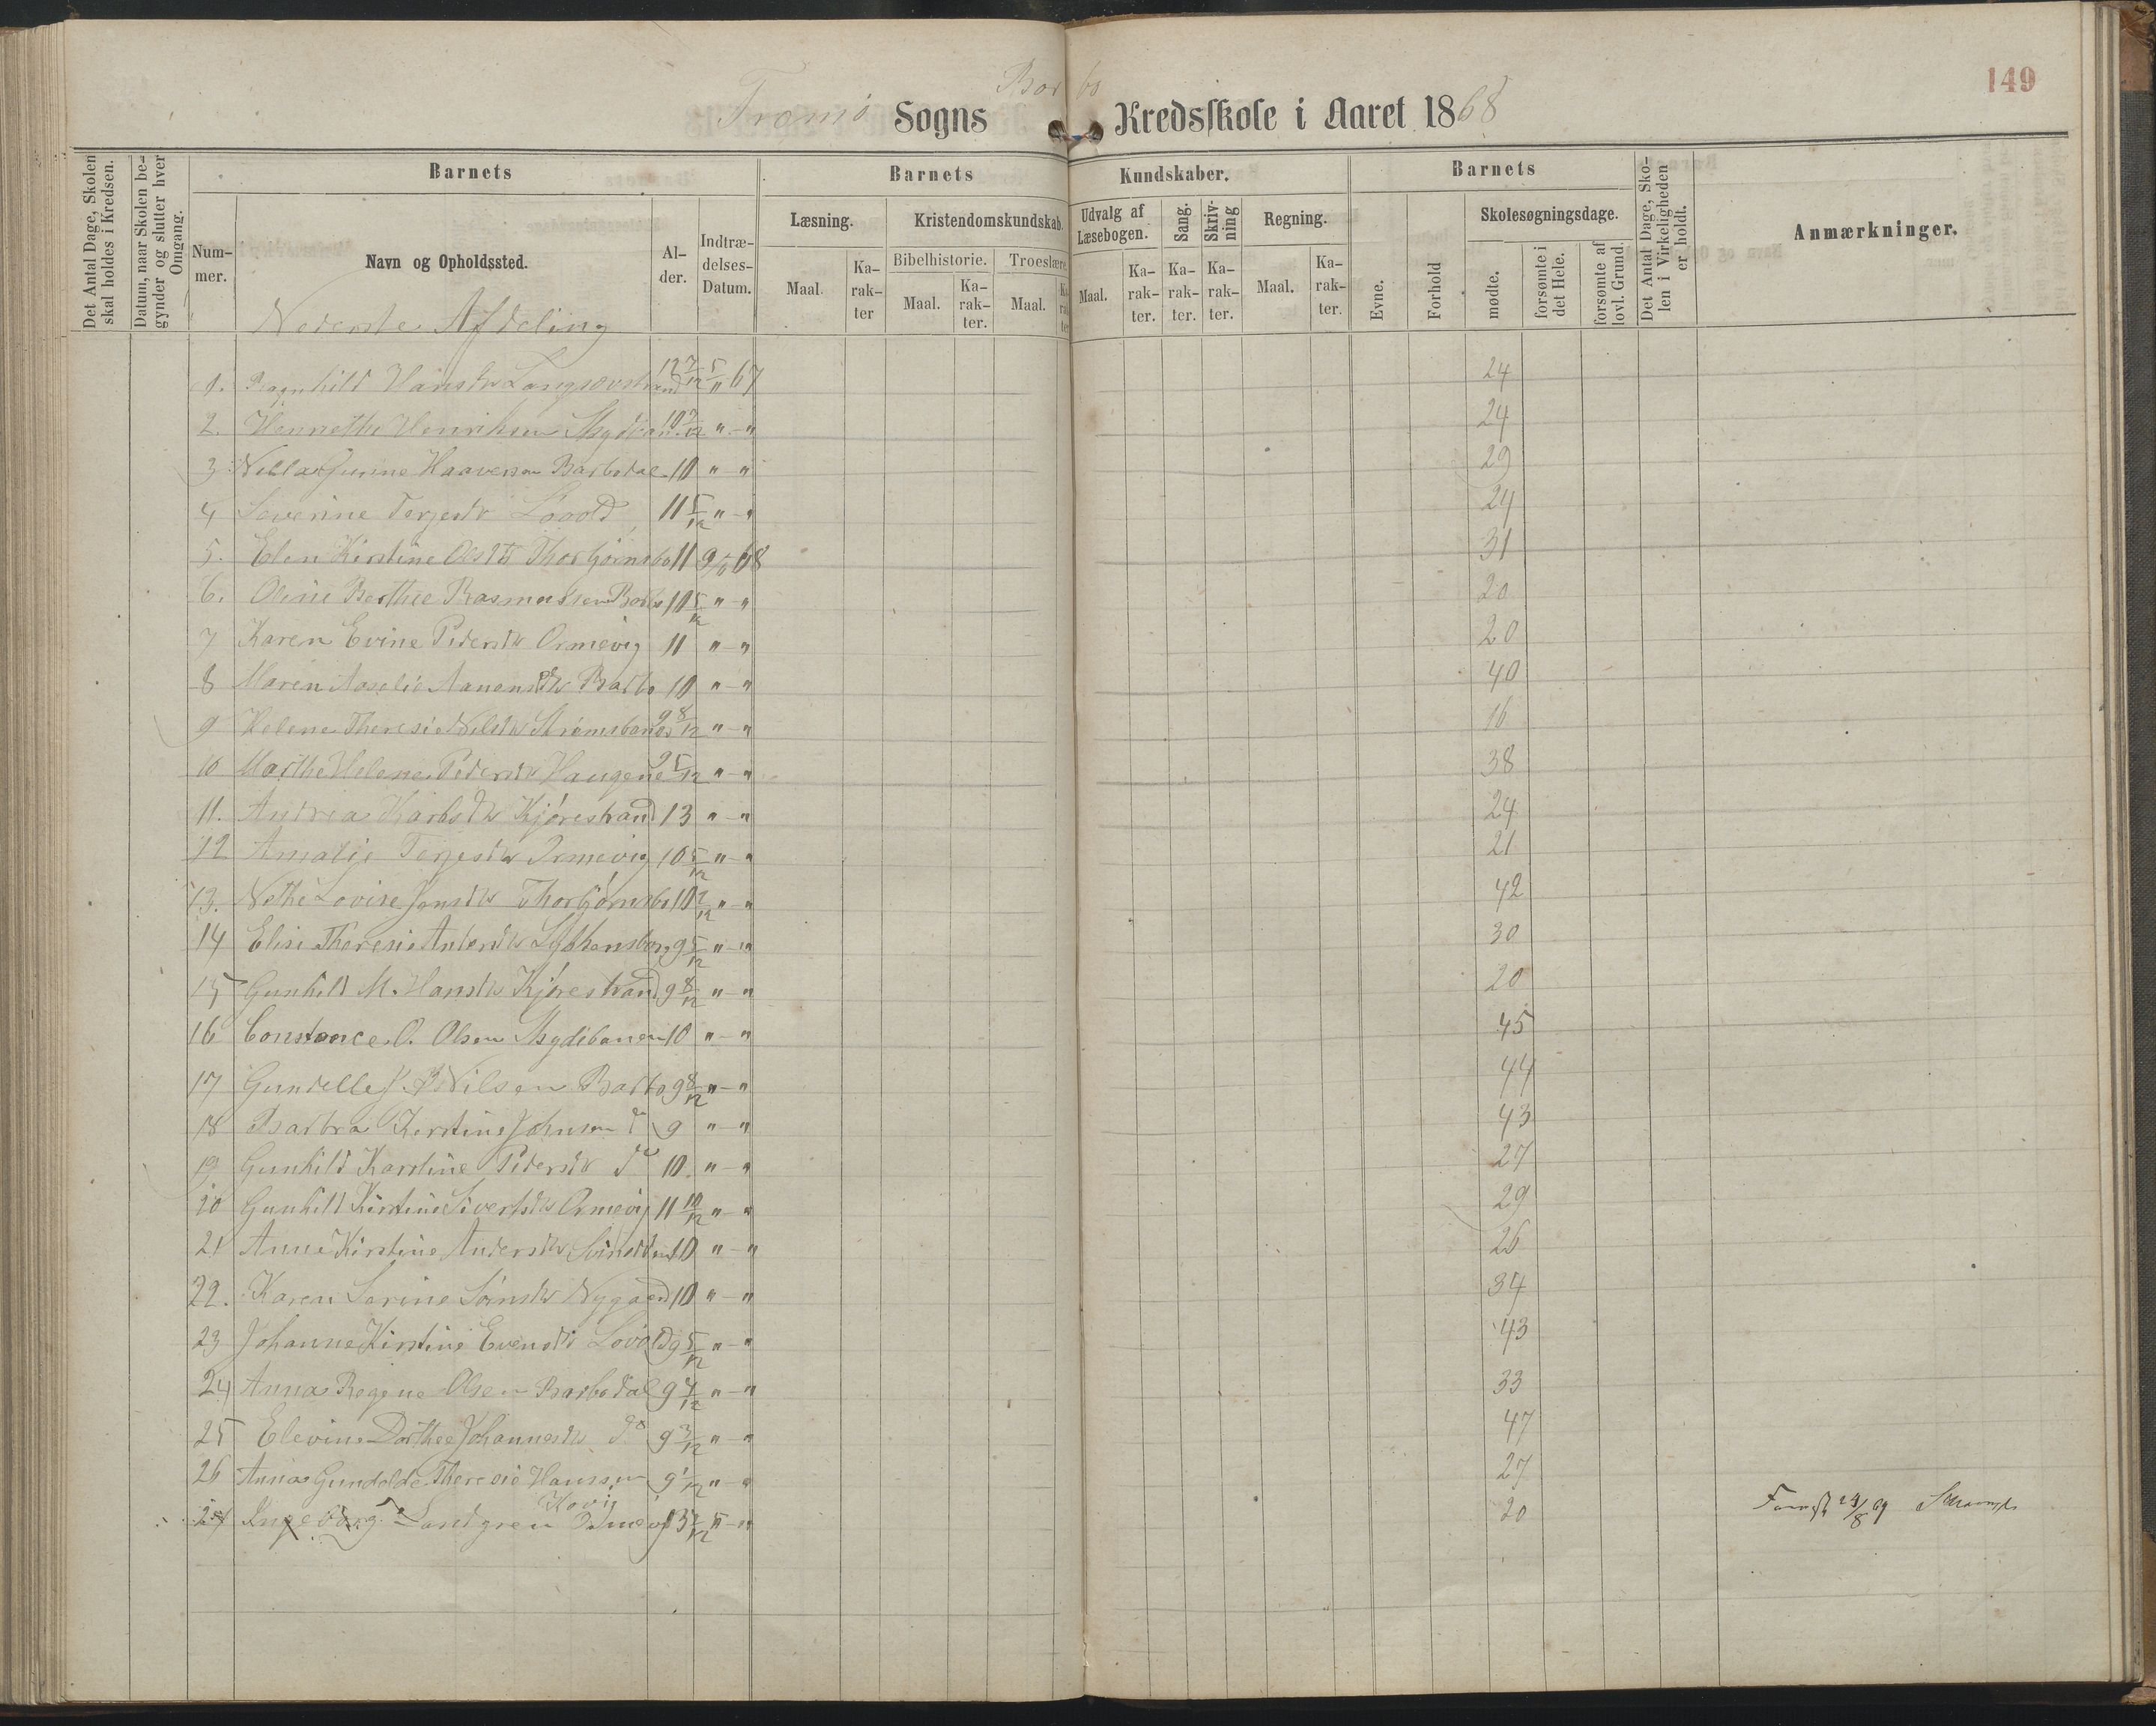 149
Tromö Sogns Barbo Kredsskole i Aaret 1868
Det Antal Dage, Skolen skal holdes i Kredsen.
Datum, naar Skolen begynder og slutter hver Omgang.
Barnets
Barnets Kundskaber.
Barnets
Nummer.
Navn og Opholdssted.
Alder.
Indtrædelses-Datum.
Læsning.
Kristendomskundskab.
Udvalg af Læsebogen.
Sang.
Skrivning
Regning.
Evne.
Forhold
Skolesøgningsdage.
Det Antal Dage, Skolen i Virkeligheden er holdt.
Anmærkninger.
Bibelhistorie.
Troeslære.
Maal.
Karakter
Maal.
Karakter.
Maal.
Karakter
Maal.
Karakter.
Karakter.
Karakter.
Maal.
Karakter.
mødte.
forsømte i det Hele.
forsømte af lovl. Grund.
Nederste Afdeling
1. Ragnhild Hansdtr Langsævstrand 12 7/12 5/" 67 24
2. Henriethe Henriksen 10 " - " 24
3 Gurine Haaversen Barbodal 10 " " 29
4 Severine Terjesdtr Lövold 11 5/12 " - " 24
5. Elen Kirstine Olsdtr Thorbjörnsbo 11 68 31
6. Oline Berthee Rasmussen Barbo 10 5/12 " " 20
7 Karen Evine Pedersdtr Ormevig 11 " - " 20
8 Maren Aanensdtr Barbo 10 " - " 40
9 Helene Theresie Nilsdtr 9 8/12 " - " 16
10 Marthe Helene Pedersdtr Haugene 9 5/12 " - " 38
11. Andrea Kjörestrand 13 " - " 24
12 Amalie Terjesdtr Ormevig 10 5/12 " - " 21
13. Nethe Lovise Jensdtr Thorbjörnsbo 10 2/12 " - " 42
14 Elise Theresie Andersdtr 9 5/12 " - " 30
15 Gunhild M. Hansdtr Kjörestrand 9 8/12 " - " 20
16 Constance O. Olsen 10 " - " 45
17 Nilsen Barbo 9 8/12 " - " 44
18 Barbra Kirstine Johnsen do 9 " - " 43
19 Gunhild Karstine Pedersdtr do 10. " - " 27
20 Gunhild Kirstine Sivertsdtr Ormevig 11 10/12 " - " 29
21 Anne Kirstine Andersdtr 10 " - " 26
22. Karen Serine Sörnsdtr Nygaard 10 " - " 34
23 Johanne Kirstine Evensdtr Lövold 9 5/12 " - " 43
24 Anna Regine Olsen Barbodal 9 4/12 " - " 33
25 Elevine Dorthee Johannesdtr do 9 3/12 " - " 47
26 Anna Theresie Hansen 9 1/12 " - " 27
Kovig
27 Ingeborg Landgren 13 " - " 20 24/8 69